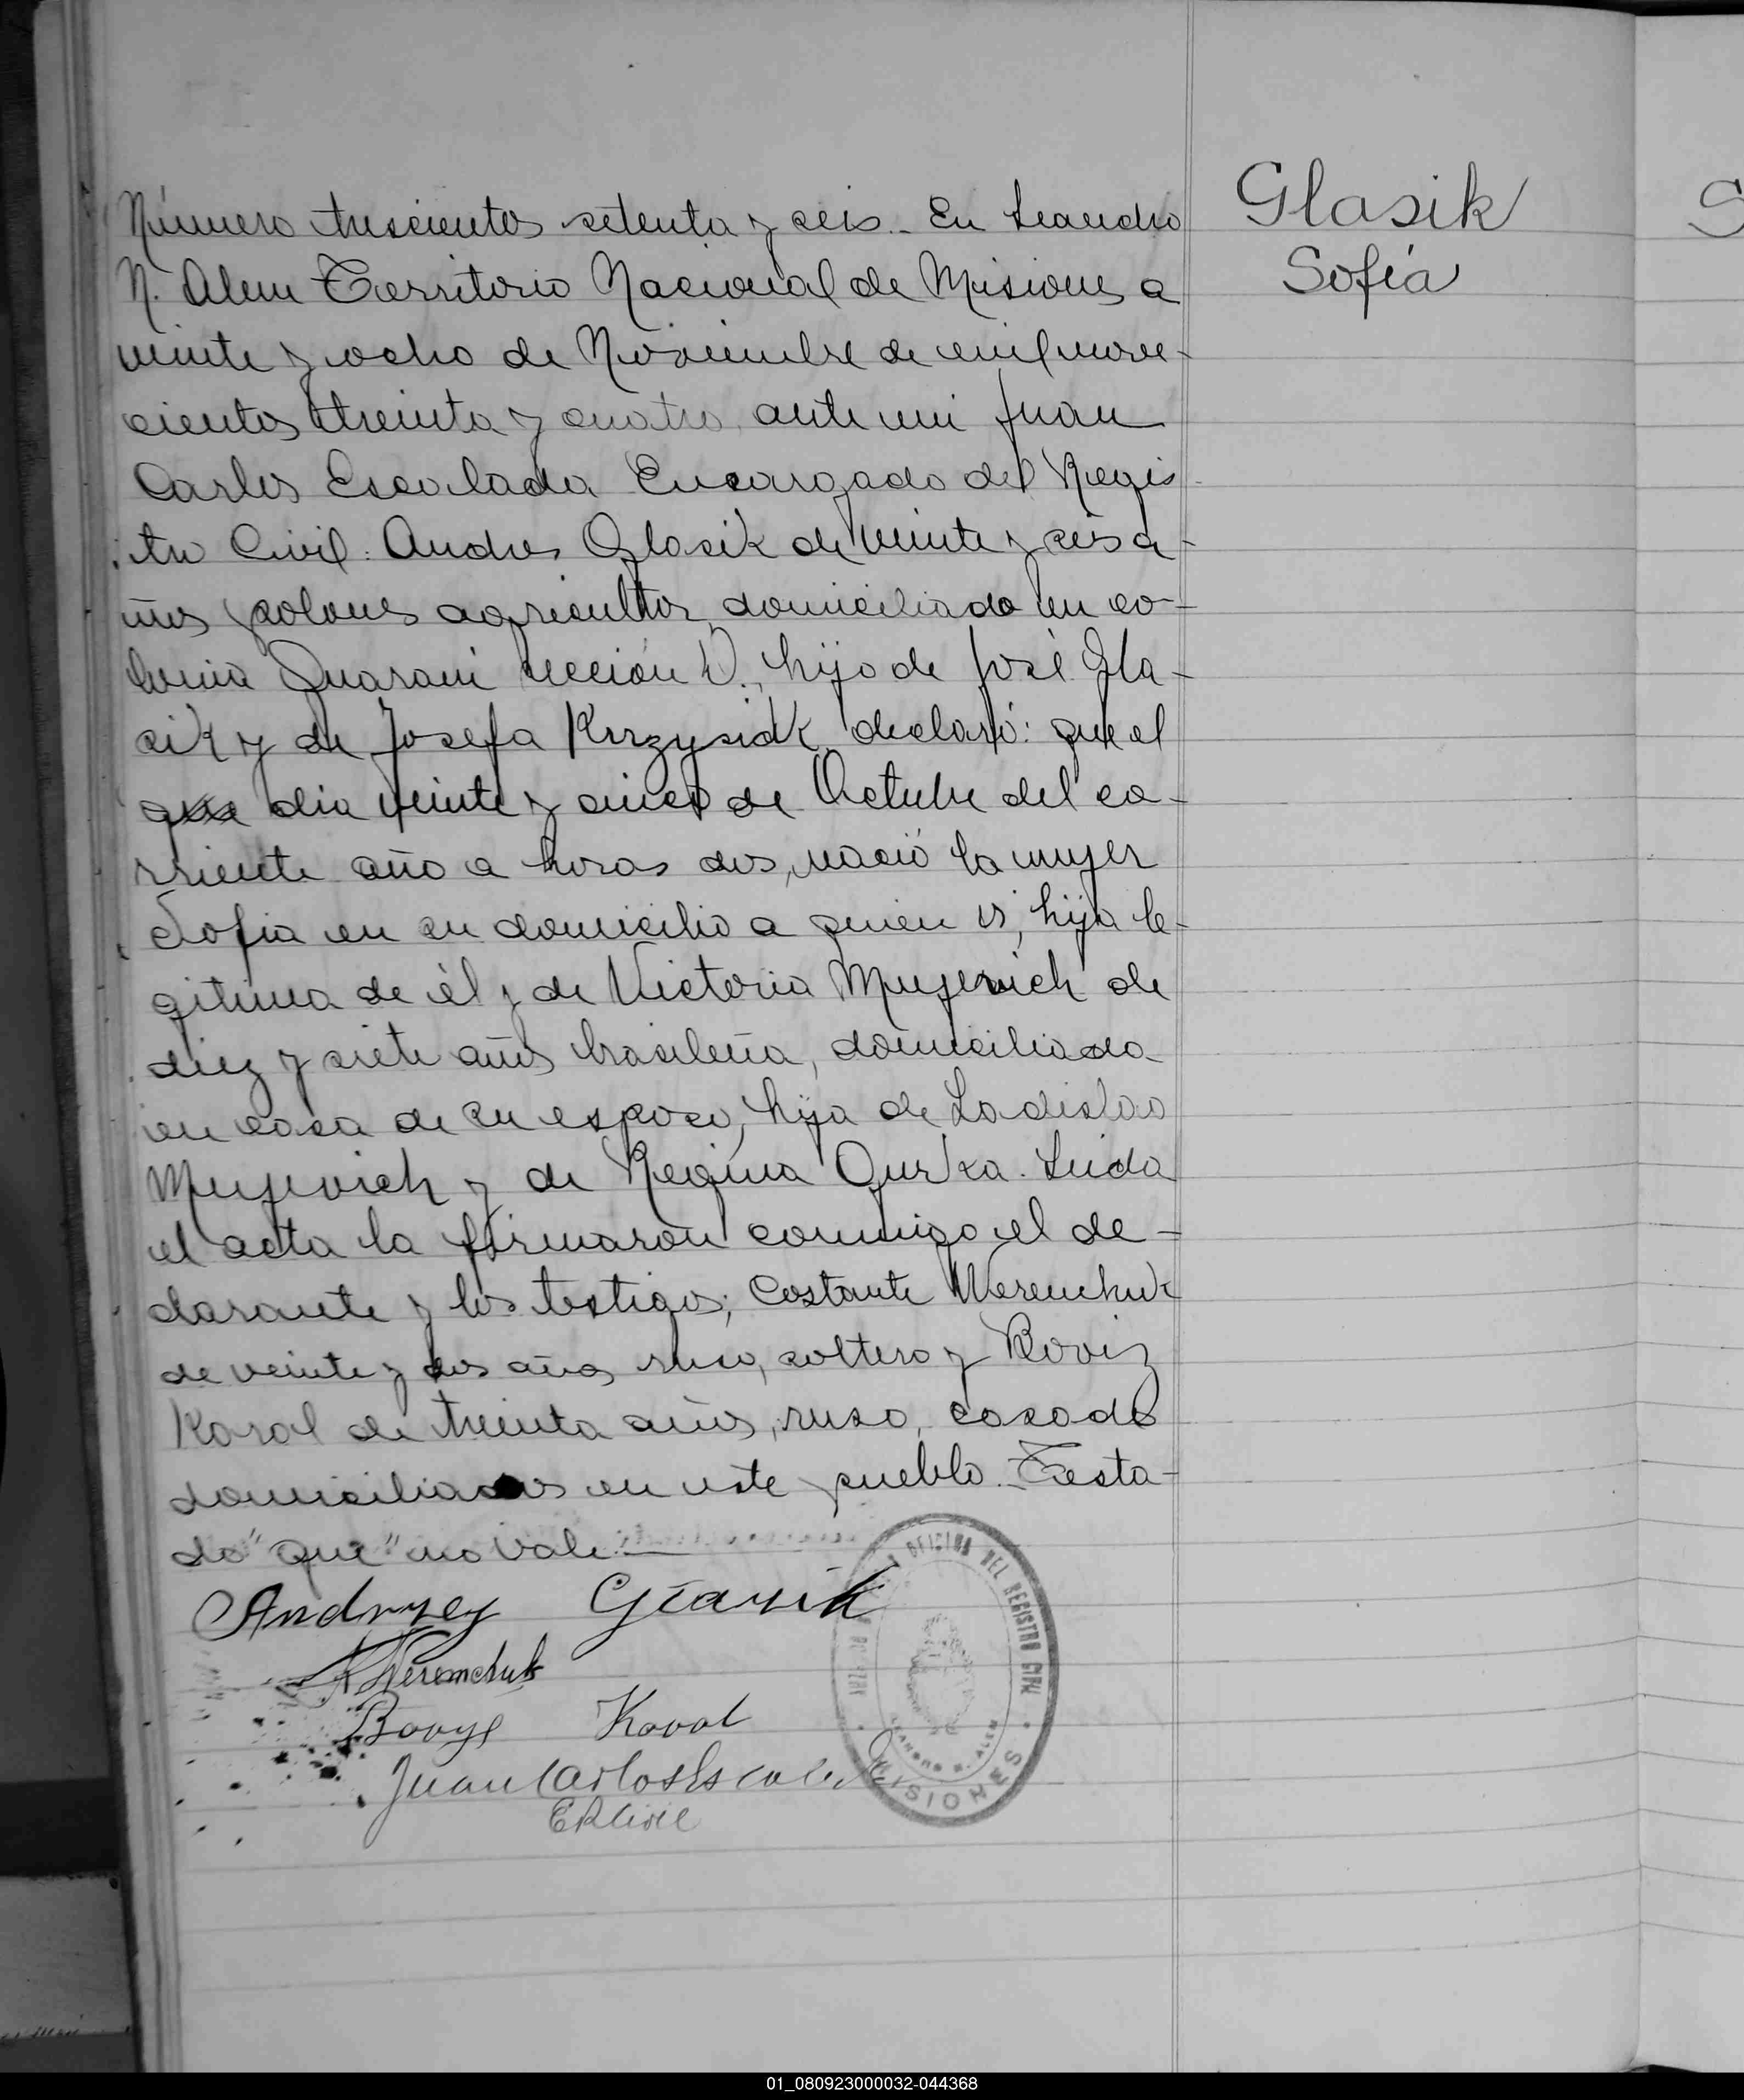 Glasik
Sofía
Número trescientos setenta y seis. En Leandro
N. Alem Territorio Nacional de Misiones a
veinte y ocho de Noviembre de mil nove-
cientos treinta y cuatro, ante mi Juan
Carlos Escalada Encargado del Regis
tro Civil: Andres Glasik de veinte y seis a-
ños polones agricultor, domiciliado en co-
lonia Guarani sección V., hijo de José Gla-
sik y de Josefa Krzysidk, declaró: que el
que dia veinte y cinco de Octubre del co-
rriente año a horas dos, nació la mujer
Sofia en su domicilio a quien vi, hija le-
gitima de él y de Victoria Mujevich de
diez y siete años brasileña, domiciliada
en casa de su esposo, hija de Ladislao
Mujevich y de Regina Gurka. Leida
el acta la firmaron conmigo el de-
clarante y los testigos; Costante Werenchuk
de veinte y dos años ruso, soltero y Boviz
Koval de treinta años, ruso, casado
domiciliados en este pueblo. Testa-
do "que" no vale.
Andrzey Glasik
K Weremchuk
Koval
Juan Carlos Escalada
E R Civil
OFICINA DEL REGISTRO CIVIL
LEANDRO N. ALEM
MISIONES
01_080923000032-044368